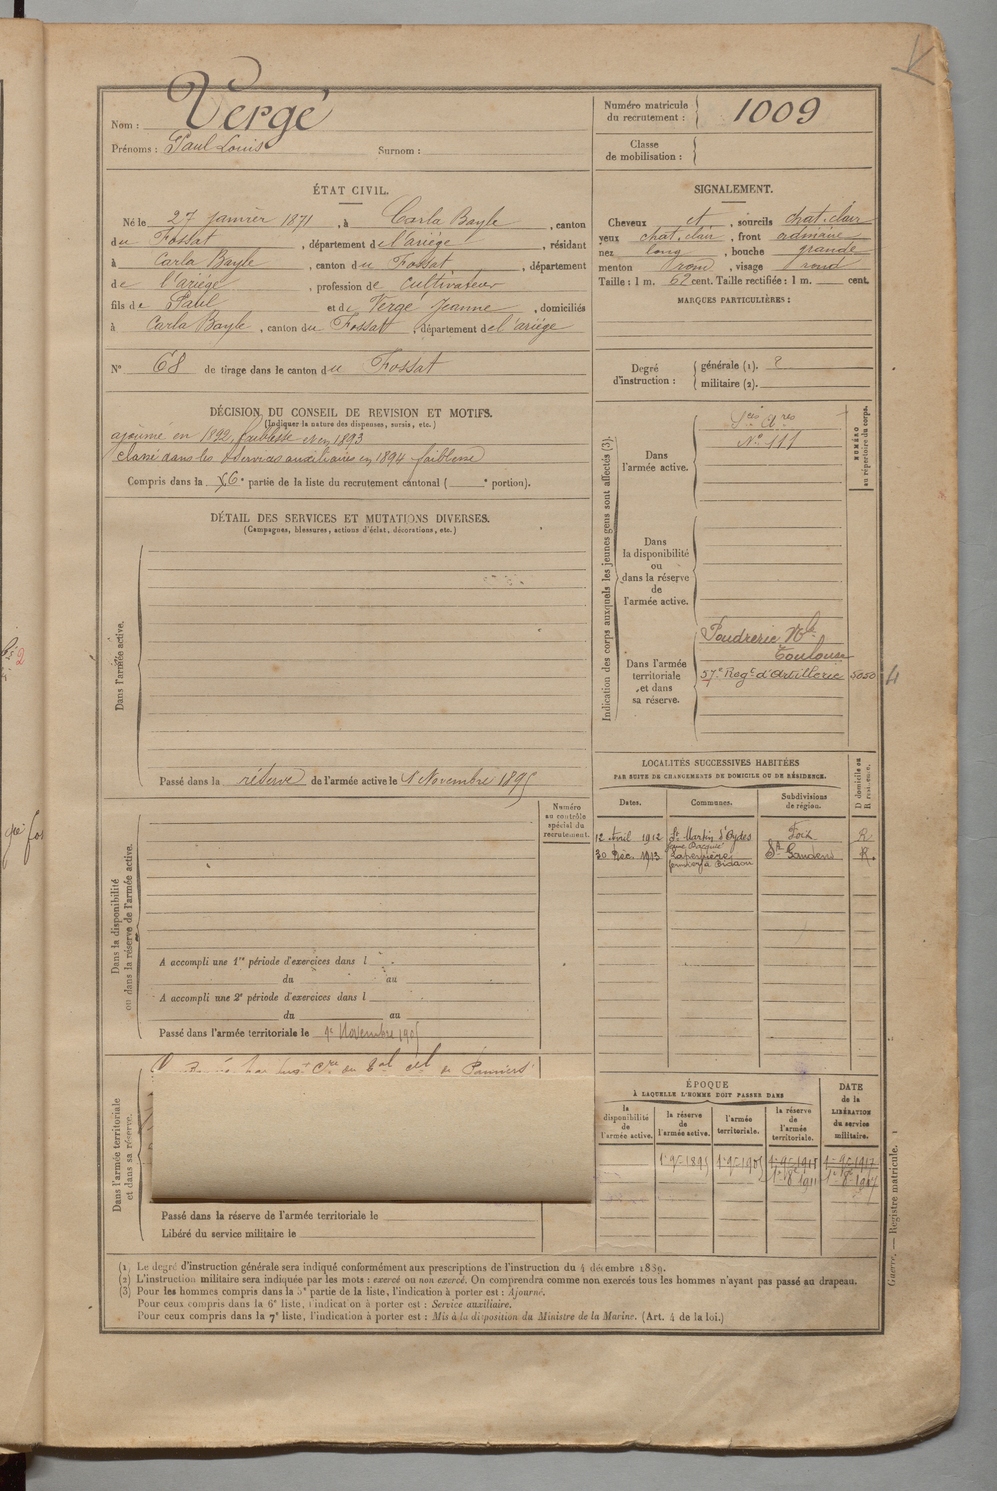 Nom : Vergé
Prénoms : Paul Louis Surnom :
Numéro matricule du recrutement : 1009
Classe de mobilisation :
ÉTAT CIVIL.
Né le 27 janvier 1871, à Carla Bayle, canton
du Fossat, département de l'ariège, résidant
à Carla Bayle, canton du Fossat, département
de l'ariège, profession de cultivateur
fils de Paul et de Vergé Jeanne, domiciliés
à Carla Bayle, canton du Fossat, département de l'ariège
N° 68 de tirage dans le canton du Fossat
SIGNALEMENT.
Cheveux et, sourcils chat. clair
yeux chat. clair, front ordinaire
nez long, bouche grande
menton rond, visage rond
Taille : 1 m. 62 cent. Taille rectifiée : 1 m. cent.
MARQUES PARTICULIÈRES :
Degré d'instruction :
générale (1). 2
militaire (2).
DÉCISION DU CONSEIL DE REVISION ET MOTIFS.
(Indiquer la nature des dispenses, sursis, etc.)
ajourné en 1892, faiblesse et en 1893
classé dans les services auxiliaires en 1894 faiblesse
Compris dans la 6e partie de la liste du recrutement cantonal ( e portion).
DÉTAIL DES SERVICES ET MUTATIONS DIVERSES.
(Campagnes, blessures, actions d'éclat, décorations, etc.)
Dans l'armée active.
Passé dans la réserve de l'armée active le 1 Novembre 1895
Numéro au contrôle spécial du recrutement.
Dans la disponibilité ou dans la réserve de l'armée active.
A accompli une 1re période d'exercices dans l
du au
A accompli une 2e période d'exercices dans l
du au
Passé dans l'armée territoriale le 1er Novembre 1905
Dans l'armée territoriale et dans sa réserve.
de Pamiers
Passé dans la réserve de l'armée territoriale le
Libéré du service militaire le
Indication des corps auxquels les jeunes gens sont affectés (3).
NUMÉRO au répertoire du corps.
Dans l'armée active.
Ses Ares
N° 111
Dans la disponibilité ou dans la réserve de l'armée active.
Dans l'armée territoriale et dans sa réserve.
Poudrerie Nle
Toulouse
57e Regt d'Artillerie 5050
LOCALITÉS SUCCESSIVES HABITÉES
PAR SUITE DE CHANGEMENTS DE DOMICILE OU DE RÉSIDENCE.
Dates. Communes. Subdivisions de région. D domicile ou R résidence.
12 Avril 1912 St Martin d'Oydes Foix R
30 Déc. 1913 St Gaudens R.
ÉPOQUE
À LAQUELLE L'HOMME DOIT PASSER DANS
la disponibilité de l'armée active.
la réserve de l'armée active.
l'armée territoriale.
la réserve de l'armée territoriale.
DATE de la LIBÉRATION du service militaire.
1er 9e 1895 1er 9e 1905 1er 9e 1911 1er 9e 1917
1er 8e 1911 1er 8e 1917
(1) Le degré d'instruction générale sera indiqué conformément aux prescriptions de l'instruction du 4 décembre 1889.
(2) L'instruction militaire sera indiquée par les mots : exercé ou non exercé. On comprendra comme non exercés tous les hommes n'ayant pas passé au drapeau.
(3) Pour les hommes compris dans la 5e partie de la liste, l'indication à porter est : Ajourné.
Pour ceux compris dans la 6e liste, l'indication à porter est : Service auxiliaire.
Pour ceux compris dans la 7e liste, l'indication à porter est : Mis à la disposition du Ministre de la Marine. (Art. 4 de la loi.)
Guerre. — Registre matricule. 1